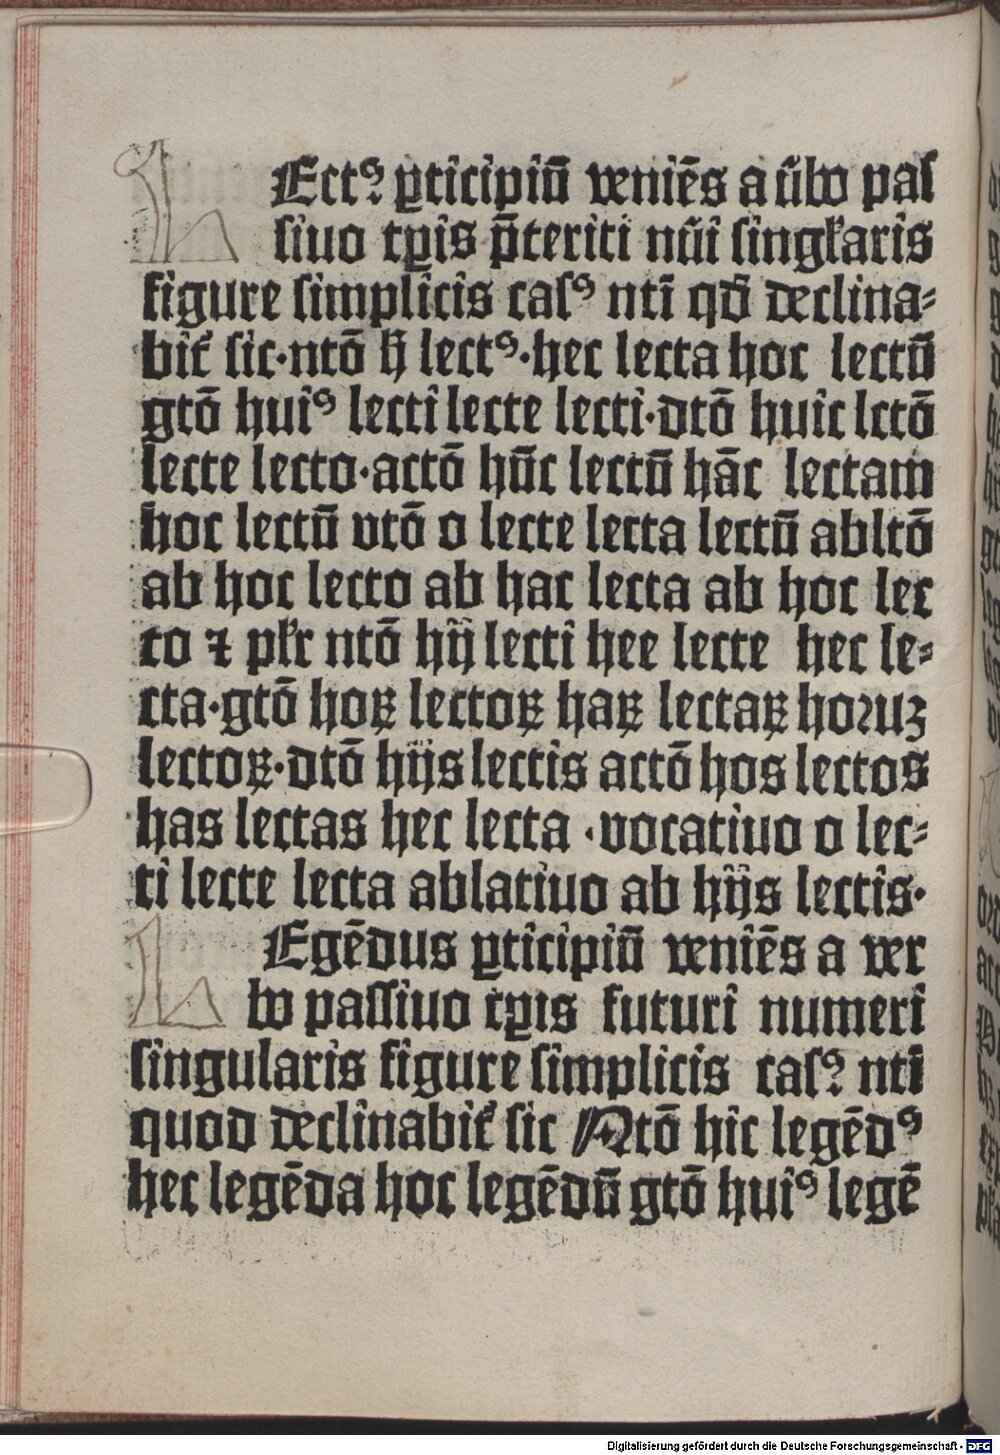 LEctꝰ ꝑticipiū veniēs a ūbo paſ
ſiuo tꝑis p̄teriti nūi ſingl̕aris
figure ſimplicis caſꝰ nti qd̄ declina⸗
bit̕ ſic·ntō h̄ lectꝰ·hec lecta hoc lectū
gtō huiꝰ lecti lecte lecti·dtō huic lctō
lecte lecto·actō hūc lectū hāc lectam
hoc lectū vtō o lecte lecta lectū abltō
ab hoc lecto ab hac lecta ab hoc lec
to ⁊ pl̕r ntō hij lecti hee lecte hec le⸗
cta·gtō hoꝝ lectoꝝ haꝝ lectaꝝ hoꝛuꝫ
lectoꝝ·dtō hijs lectis actō hos lectos
has lectas hec lecta ·vocatiuo o lec⸗
ti lecte lecta ablatiuo ab hijs lectis·
LEgēdus ꝑticipiū veniēs a ver
bo paſſiuo tꝑis futuri numeri
ſingularis figure ſimplicis caſꝰ nti
quod declinabit̕ ſic Ntō hic legēdꝰ
hec legēda hoc legēdū gtō huiꝰ legē
Digitalisierung gefördert durch die Deutsche Forschungsgemeinschaft - DFG